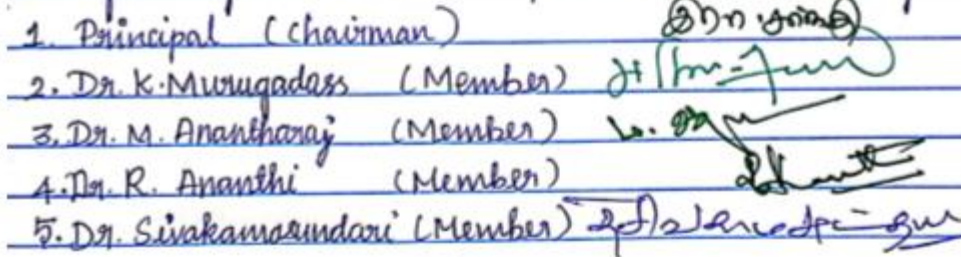 1. Principal (Chairman)
2. Dr. K. Murugadass (Member)
3. Dr. M. Anantharaj (Member)
4. Dr. R. Ananthi (Member)
5. Dr. Sivakamasundari (Member)